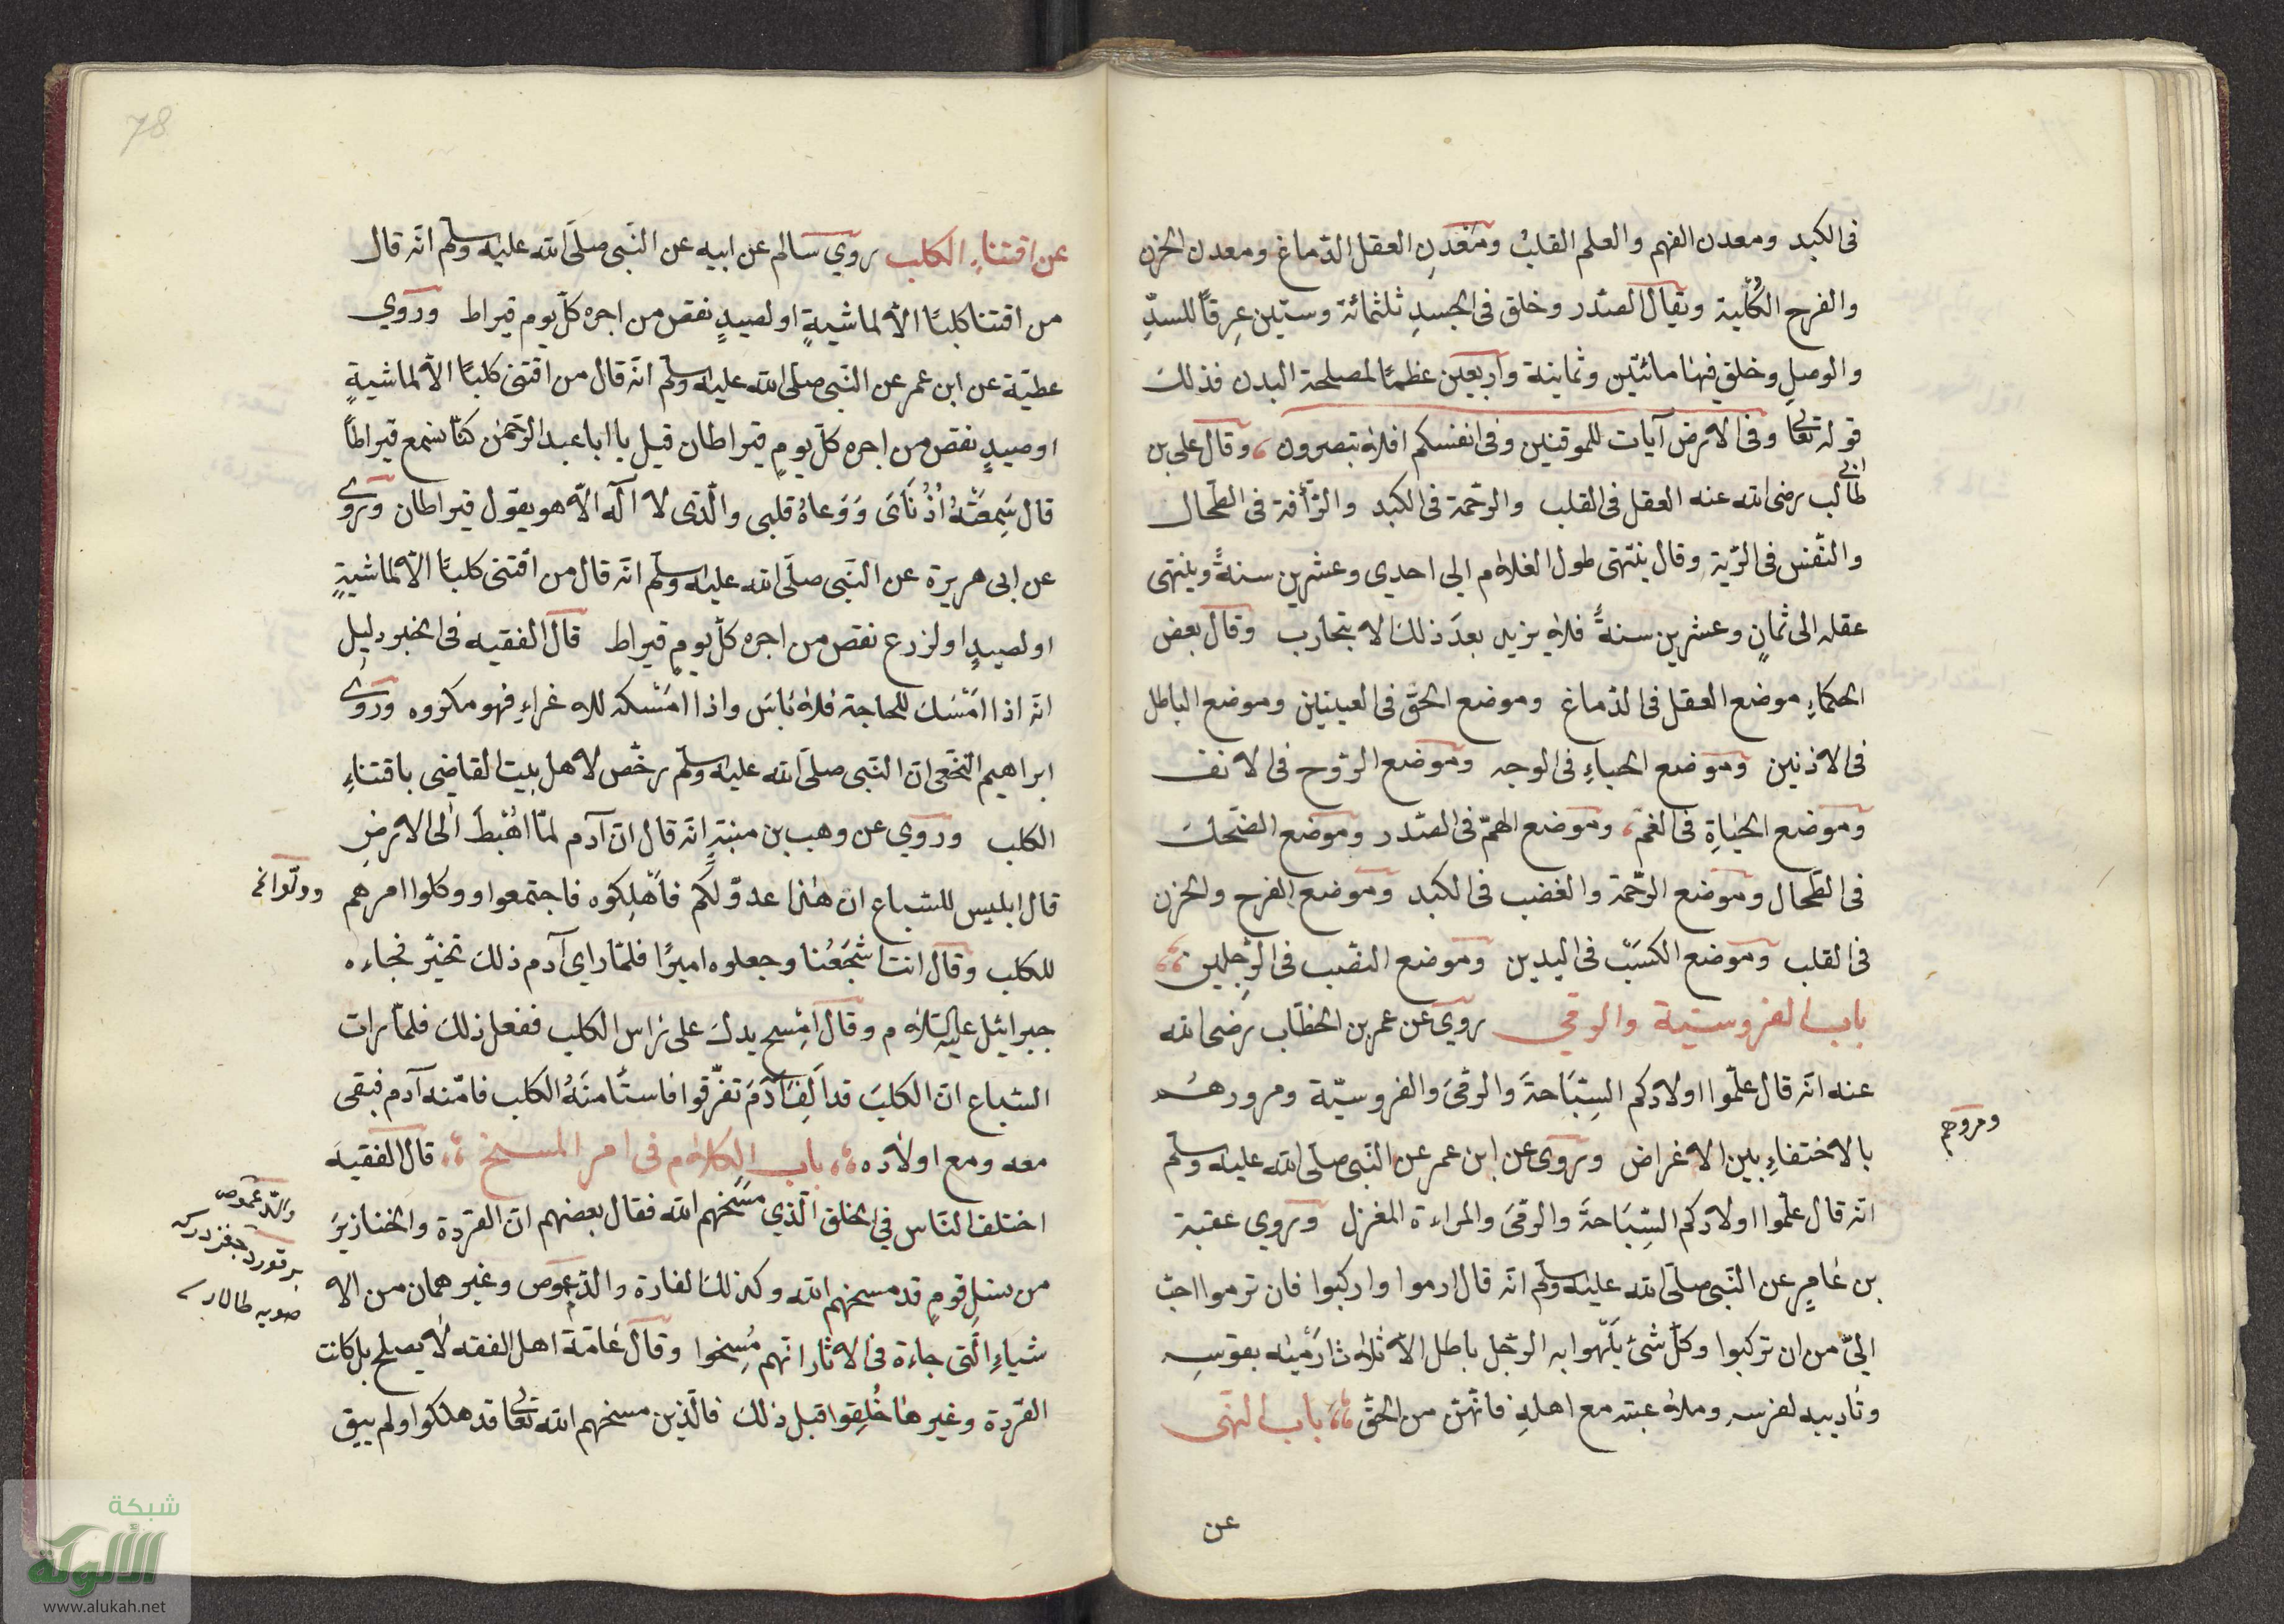 فى الكبد ومعدن الفهم والعلم القلبُ ومَعْدِنِ العقل الدّماغ ومعدن الحزن
والفرح الكُلْية ويقال الصّدر وخلق فى الجسدِ ثلثمائة وستين عِرقاً للسدِّ
والوصلِ وخلق فيها مائتين وثمانية وأربعين عظمًا لمصلحة البدن فذلك
قوله تعالى وفى الارض آيات للموقنين وفى انفسكم افلا تبصرون ، وقال على بن
ابى طالب رضى الله عنه العقل فى القلب والرّحمة فى الكبد والرّأفة فى الطّحال
والنّفس فى الرّية وقال ينتهى طول الغلام الي احدي وعشرين سنةً وينتهى
عقله الى ثمانٍ وعشرين سنةً فلا يزيد بعدَ ذلك الا بتجارب وقال بعض
الحكماءِ موضع العقل فى الدّماغ وموضع الحقّ فى العينين وموضع الباطل
فى الاذنين وموضع الحياءِ فى الوجه وموضع الرّوح فى الانف
وموضع الحياةِ فى الفم ، وموضع الهمّ فى الصّدر وموضع الضّحك
فى الطّحال وموضع الرّحمة والغضب فى الكبد وموضع الفرح والحزن
فى القلب وموضع الكسَبْ فى اليدين وموضع النصّب فى الرِّجلين
باب الفروسيّة والرمي روي عن عمر بن الخطّاب رضى الله
عنه انّه قال علّموا اولادكم السِّبَاحةَ والرمْىَ والفروسيّة ومرورهُم
ومروهم
بالاختفاءِ بين الاغراض وروى عن ابن عمر عن النّبى صلّى الله عليه وسلّم
انّه قال علّموا اولادكم السِّبَاحةَ والرمْىَ والمراءة المغزل وروي عقبة
بن عامرٍ عن النّبى صلّى الله عليه وسلّم انّه قال ارموا واركبوا فان ترموا احبّ
اليّ من ان تركبوا وكلّ شئ يَلْهوا به الرّجل باطل الاّ ثلاثا رَمْيَه بقوسِه
وتأديبه لفرسه وملاعبته مع اهلهِ فانّهنّ من الحقّ باب النّهى
عن
78
عن اقتناءِ الكلب روي سالم عن ابيه عن النّبى صلّى الله عليه وسلّم انّه قال
من اقتنا كلبًا الاّ لماشيةٍ او لصيدٍ نقص من اجره كلّ يوم قيراط وروي
عطيّة عن ابن عمر عن النّبى صلّى الله عليه وسلّم انّه قال من اقتنى كلبًا الاّ لماشيةٍ
او صيدٍ نقص من اجره كلّ يومٍ قيراطان قيل يا ابا عبد الرّحمن كنّا نسمع قيراطاً
قال سَمِعَتْهُ اُذُنَاىَ وَوَعاهُ قلبى والّذى لا آله الاّ هو يقول قيراطان وروى
عن ابى هريرة عن النّبى صلّى الله عليه وسلّم انّه قال من اقتنى كلبًا الاّ لماشيةٍ
او لصيدٍ او لزرع نقص من اجره كلّ يومٍ قيراط قال الفقيه فى الخبر دليل
انّه اذا امْسَك للحاجة فلا بَاسَ واذا امْسَكه للاغراءِ فهو مكروه وروى
ابراهيم النّخعى انّ النّبى صلّى الله عليه وسلّم رخّص لاهل بيت القاضى باقتناءِ
الكلب وروي عن وهب بن منبّهٍ انّه قال انّ آدم لمّا اُهْبِطَ الى الارضِ
قال ابليس للسّباع ان هٰذا عدوّ لكم فاَهْلِكوه فاجتمعوا ووكلوا امرهم
وولّوا
للكلب وقال انت اَشْجَعُنا وجعلوه اميرًا فلمّا راى آدم ذلك تحيّر فجاءه
جبرائيل عليه السّلام وقال اِمْسح يدك على رَاس الكلب ففعل ذلك فلمّا رات
السّباع انّ الكلبَ قد اَلِفَ آدَمَ تفرّقوا فاستأمنَهُ الكلب فامّنه آدم فبقى
معه ومع اولاده باب الكلام فى امر المسخ قال الفقيه
اختلف النّاس فى الخلق الّذي مسَخهم الله فقال بعضهم انّ القرَدة والخنازيرَ
من نسلِ قومٍ قد مسخهم الله وكذلك الفارة والدّعموص وغيرهما من الا
والدّعموص
شياءِ الّتى جاءة فى الاثار انّهم مُسِخوا وقال عَامّة اهل الفقه لا يصلح بل كانت
القرَدة وغيرها خُلِقوا قبل ذلك فالّذين مسخهم الله تعالى قد هلكوا ولم يبق
شبكة
الألوكة
www.alukah.net